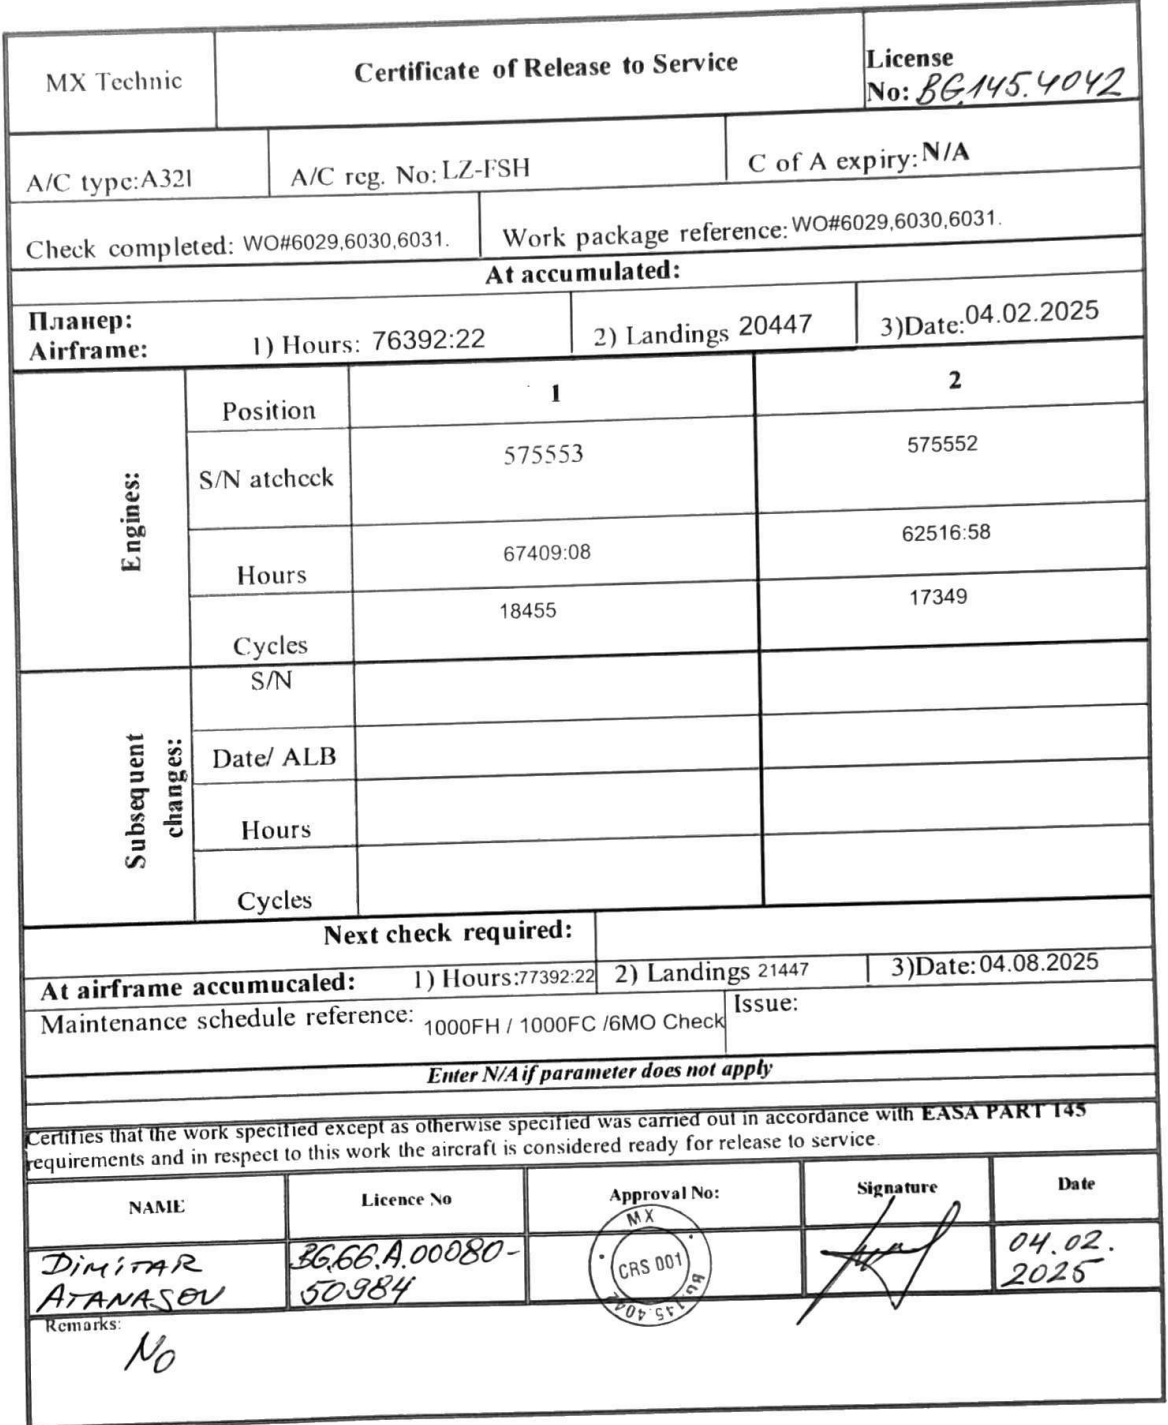 MX Technic
Certificate of Release to Service
License
No: BG.145.4042
A/C type:A321
A/C reg. No: LZ-FSH
C of A expiry: N/A
Check completed: WO#6029,6030,6031.
Work package reference: WO#6029,6030,6031.
At accumulated:
Планер:
Airframe:
1) Hours: 76392:22
2) Landings 20447
3)Date:04.02.2025
Engines:
Position
1
2
S/N atcheck
575553
575552
Hours
67409:08
62516:58
Cycles
18455
17349
Subsequent
changes:
S/N
Date/ ALB
Hours
Cycles
Next check required:
At airframe accumucaled:
1) Hours:77392:22
2) Landings 21447
3)Date:04.08.2025
Maintenance schedule reference: 1000FH / 1000FC /6MO Check
Issue:
Enter N/A if parameter does not apply
Certifies that the work specified except as otherwise specified was carried out in accordance with EASA PART 145
requirements and in respect to this work the aircraft is considered ready for release to service.
NAME
Licence No
Approval No:
Signature
Date
DIMITAR
ATANASOV
BG.66.A.00080-
50984
MX
CRS 001
BG.145.4042
04.02.
2025
Remarks:
No